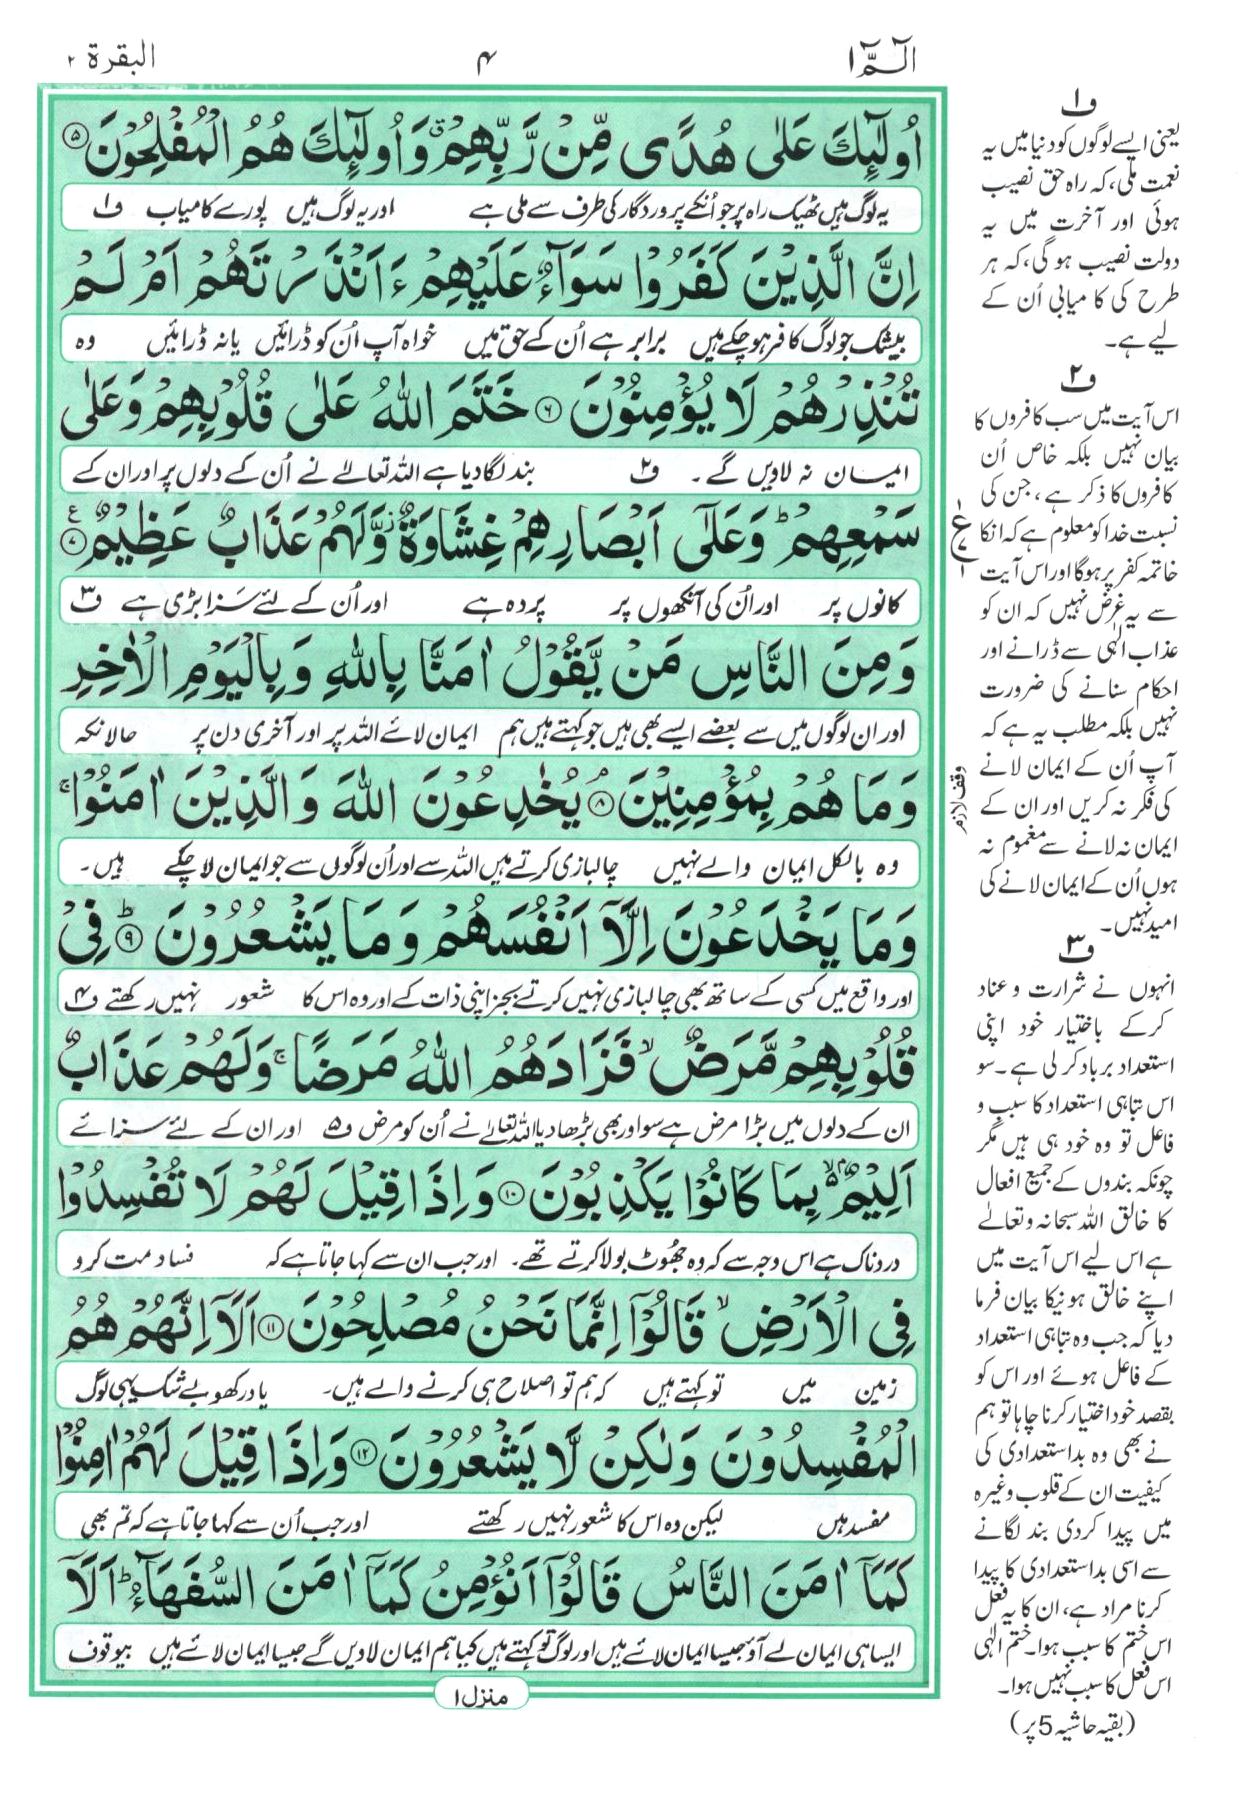 الٓمّٓ ١
۴
البقرة ٢
اُولٰٓئِكَ عَلٰى هُدًى مِّنْ رَّبِّهِمْ ۗ وَاُولٰٓئِكَ هُمُ الْمُفْلِحُوْنَ ۝۵
یہ لوگ ہیں ٹھیک راہ پر جو اُنکے پروردگار کی طرف سے ملی ہے اور یہ لوگ ہیں پورے کامیاب ف۱
اِنَّ الَّذِيْنَ كَفَرُوْا سَوَآءٌ عَلَيْهِمْ ءَاَنْذَرْتَهُمْ اَمْ لَمْ
بیشک جو لوگ کافر ہو چکے ہیں برابر ہے اُن کے حق میں خواہ آپ اُن کو ڈرائیں یا نہ ڈرائیں وہ
تُنْذِرْهُمْ لَا يُؤْمِنُوْنَ ۝۶ خَتَمَ اللّٰهُ عَلٰى قُلُوْبِهِمْ وَعَلٰى
ایمان نہ لاویں گے۔ ف۲ بند لگا دیا ہے اللہ تعالےٰ نے اُن کے دلوں پر اور ان کے
سَمْعِهِمْ ؕ وَعَلٰٓى اَبْصَارِهِمْ غِشَاوَةٌ ؗ وَّلَهُمْ عَذَابٌ عَظِيْمٌ ۝۷ ع
کانوں پر اور اُن کی آنکھوں پر پردہ ہے اور اُن کے لئے سَزا بڑی ہے ف۳
وَمِنَ النَّاسِ مَنْ يَّقُوْلُ اٰمَنَّا بِاللّٰهِ وَبِالْيَوْمِ الْاٰخِرِ
اور ان لوگوں میں سے بعضے ایسے بھی ہیں جو کہتے ہیں ہم ایمان لائے اللہ پر اور آخری دن پر حالانکہ
وَمَا هُمْ بِمُؤْمِنِيْنَ ۝۸ۘ يُخٰدِعُوْنَ اللّٰهَ وَالَّذِيْنَ اٰمَنُوْا ۚ
وہ بالکل ایمان والے نہیں چالبازی کرتے ہیں اللہ سے اور اُن لوگوں سے جو ایمان لا چکے ہیں۔
وَمَا يَخْدَعُوْنَ اِلَّآ اَنْفُسَهُمْ وَمَا يَشْعُرُوْنَ ۝۹ؕ فِىْ
اور واقع میں کسی کے ساتھ بھی چالبازی نہیں کرتے بجز اپنی ذات کے اور وہ اس کا شعور نہیں رکھتے ف۴
قُلُوْبِهِمْ مَّرَضٌ ۙ فَزَادَهُمُ اللّٰهُ مَرَضًا ۚ وَلَهُمْ عَذَابٌ
ان کے دلوں میں بڑا مرض ہے سو اور بھی بڑھا دیا اللہ تعالےٰ نے اُن کو مرض ف۵ اور ان کے لئے سزائے
اَلِيْمٌ ۢ ۙ بِمَا كَانُوْا يَكْذِبُوْنَ ۝۱۰ وَاِذَا قِيْلَ لَهُمْ لَا تُفْسِدُوْا
دردناک ہے اس وجہ سے کہ وہ جھُوٹ بولا کرتے تھے۔ اور جب ان سے کہا جاتا ہے کہ فساد مت کرو
فِى الْاَرْضِ ۙ قَالُوْٓا اِنَّمَا نَحْنُ مُصْلِحُوْنَ ۝۱۱ اَلَآ اِنَّهُمْ هُمُ
زمین میں تو کہتے ہیں کہ ہم تو اصلاح ہی کرنے والے ہیں۔ یاد رکھو بے شک یہی لوگ
الْمُفْسِدُوْنَ وَلٰكِنْ لَّا يَشْعُرُوْنَ ۝۱۲ وَاِذَا قِيْلَ لَهُمْ اٰمِنُوْا
مفسد ہیں لیکن وہ اس کا شعور نہیں رکھتے اور جب اُن سے کہا جاتا ہے کہ تم بھی
كَمَآ اٰمَنَ النَّاسُ قَالُوْٓا اَنُؤْمِنُ كَمَآ اٰمَنَ السُّفَهَآءُ ؕ اَلَآ
ایسا ہی ایمان لے آؤ جیسا ایمان لائے ہیں اور لوگ تو کہتے ہیں کیا ہم ایمان لاویں گے جیسا ایمان لائے ہیں بیوقوف
منزل ۱
ف۱
یعنی ایسے لوگوں کو دنیا میں یہ
نعمت ملی، کہ راہ حق نصیب
ہوئی اور آخرت میں یہ
دولت نصیب ہو گی، کہ ہر
طرح کی کامیابی اُن کے
لیے ہے۔
ف۲
اس آیت میں سب کافروں کا
بیان نہیں بلکہ خاص اُن
کافروں کا ذکر ہے، جن کی
نسبت خدا کو معلوم ہے کہ انکا
خاتمہ کفر پر ہو گا اور اس آیت
سے یہ غرض نہیں کہ ان کو
عذاب الٰہی سے ڈرانے اور
احکام سنانے کی ضرورت
نہیں بلکہ مطلب یہ ہے کہ
آپ اُن کے ایمان لانے
کی فکر نہ کریں اور ان کے
ایمان نہ لانے سے مغموم نہ
ہوں اُن کے ایمان لانے کی
امید نہیں۔
ف۳
انہوں نے شرارت و عناد
کر کے باختیار خود اپنی
استعداد برباد کر لی ہے۔ سو
اس تباہی استعداد کا سبب و
فاعل تو وہ خود ہی ہیں مگر
چونکہ بندوں کے جمیع افعال
کا خالق اللہ سبحانہ و تعالےٰ
ہے اس لیے اس آیت میں
اپنے خالق ہونیکا بیان فرما
دیا کہ جب وہ تباہی استعداد
کے فاعل ہوئے اور اس کو
بقصد خود اختیار کرنا چاہا تو ہم
نے بھی وہ بد استعدادی کی
کیفیت ان کے قلوب وغیرہ
میں پیدا کر دی بند لگانے
سے اسی بد استعدادی کا پیدا
کرنا مراد ہے، ان کا یہ فعل
اس ختم کا سبب ہوا۔ ختم الٰہی
اس فعل کا سبب نہیں ہوا۔
(بقیہ حاشیہ 5 پر)
ع
۷
۱
وقف لازم